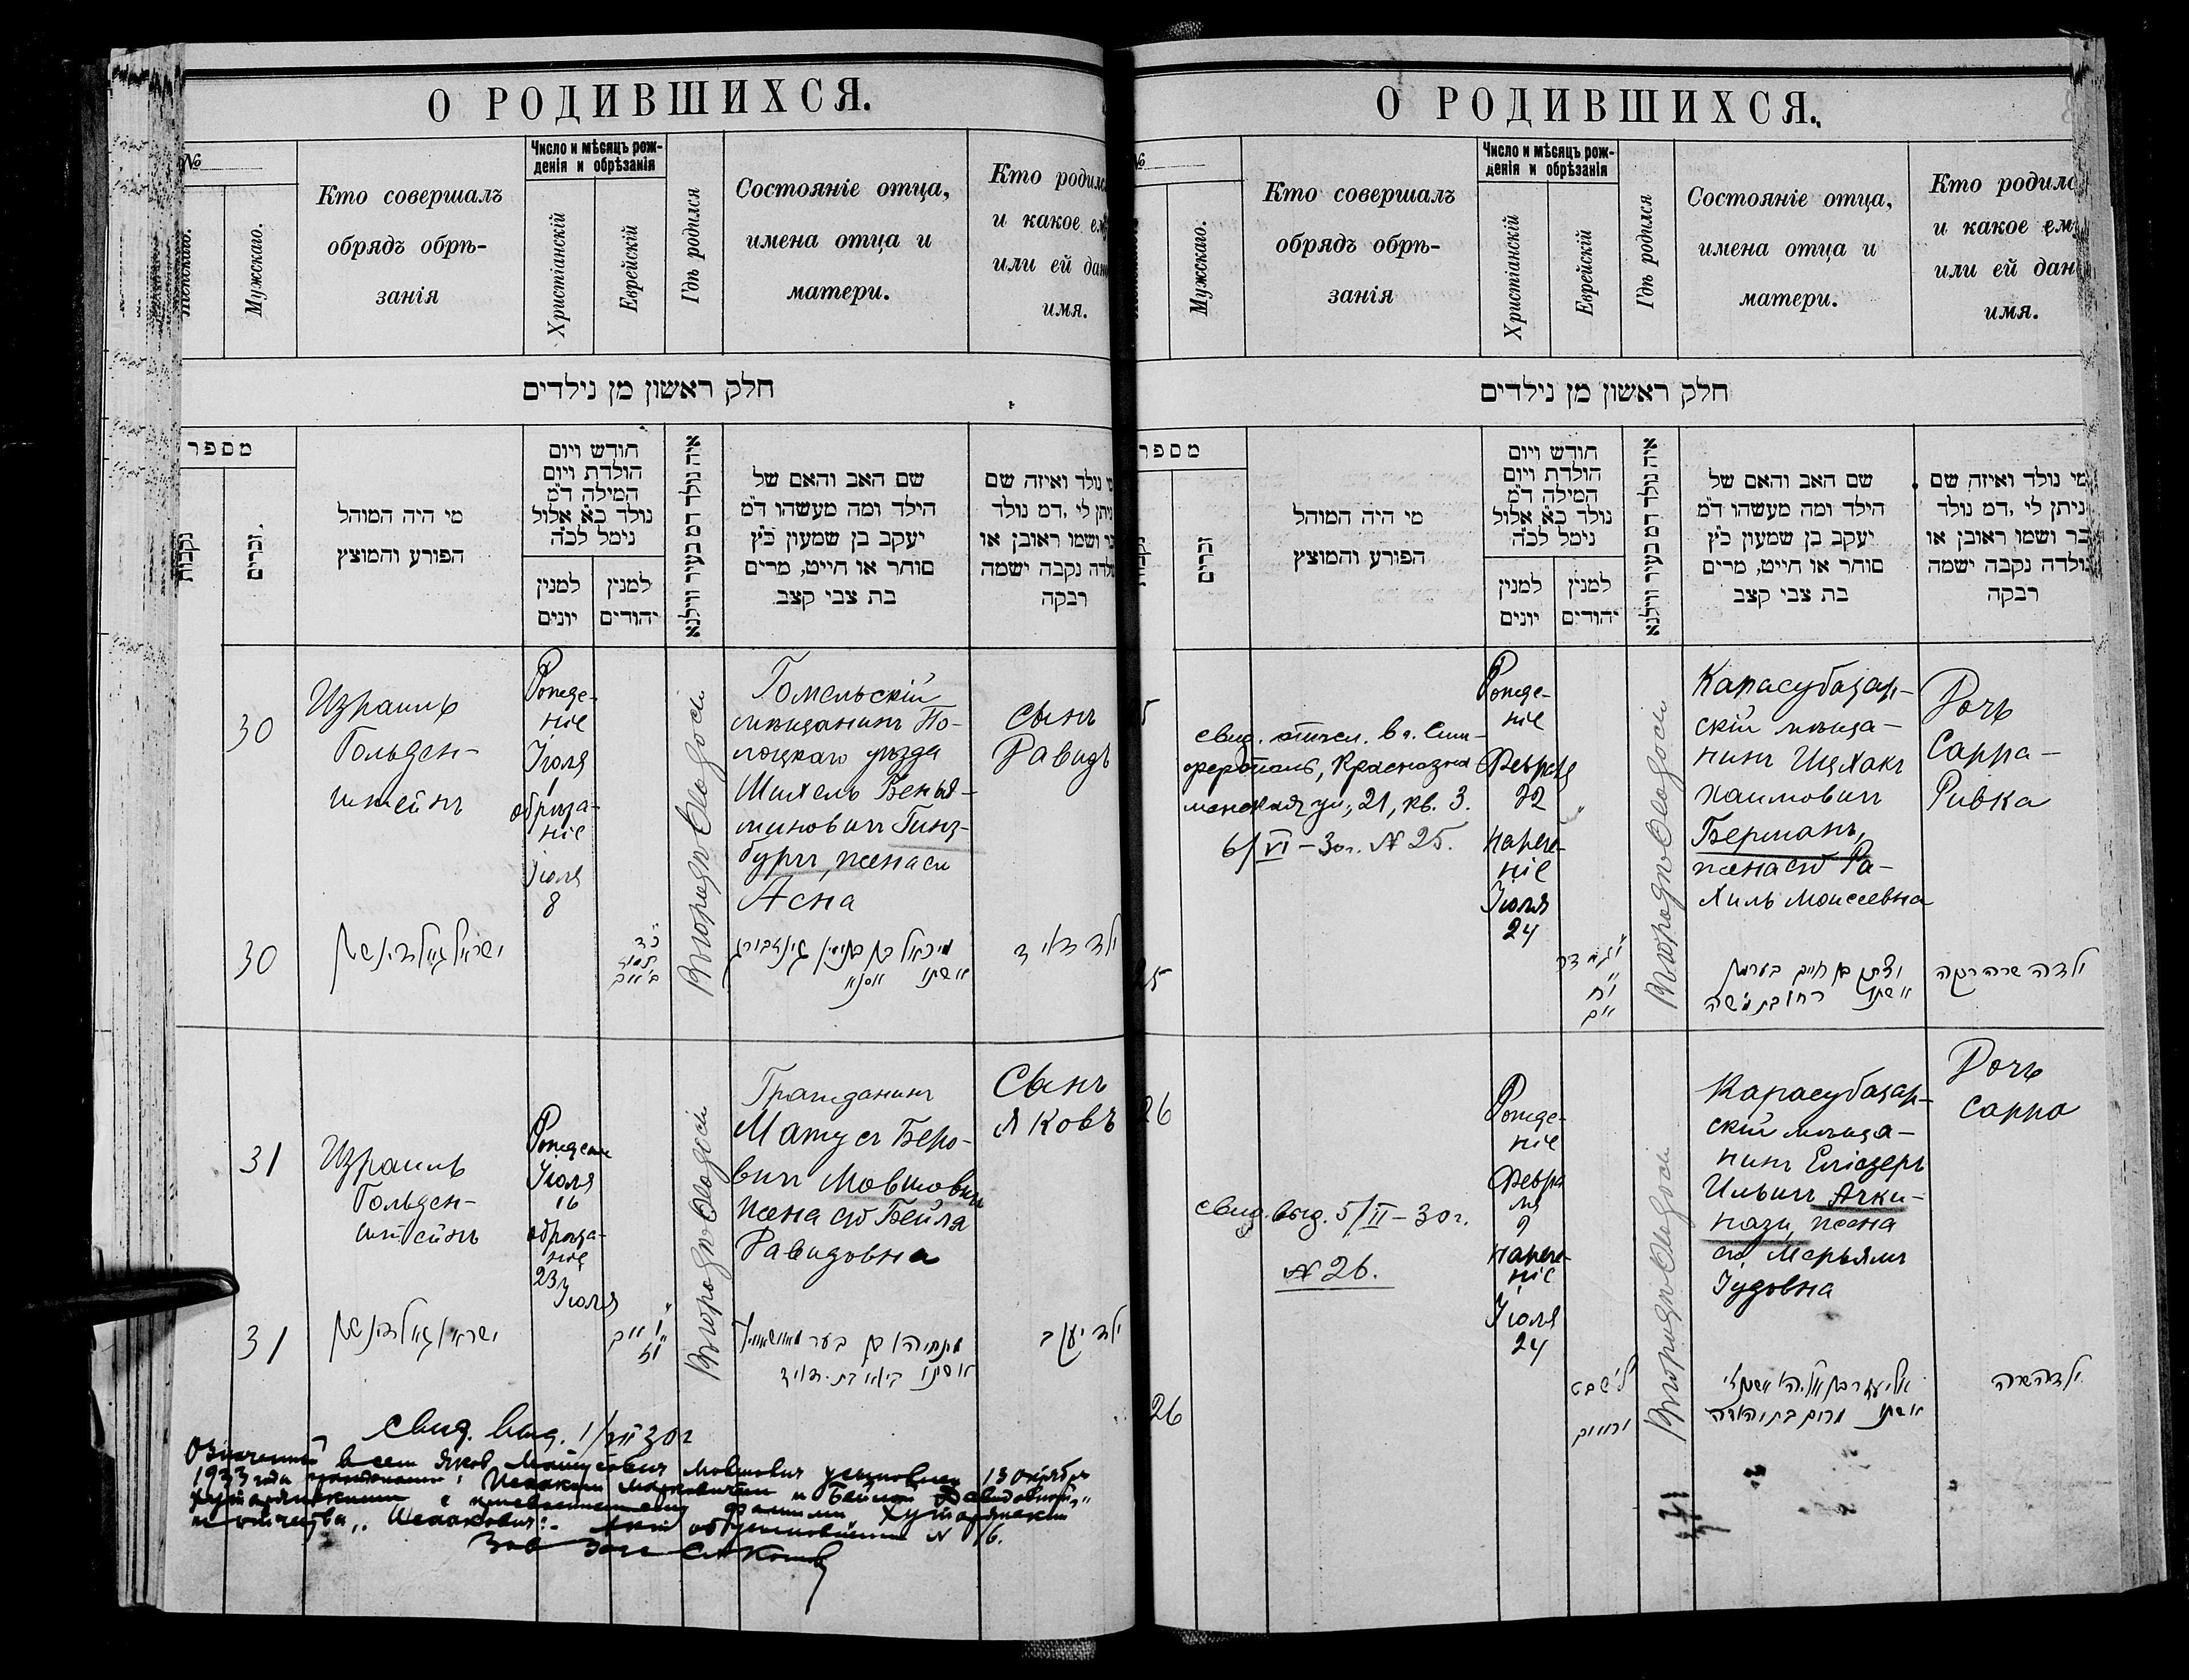 О РОДИВШИХСЯ.
№
Женскаго.
Мужскаго.
Кто совершалъ
обрядъ обрѣ-
занія
Число и мѣсяцъ рож-
денія и обрѣзанія
Христіанскій
Еврейскій
Гдѣ родился
Состояніе отца,
имена отца и
матери.
Кто родился
и какое ему
или ей дано
имя.
חלק ראשון מן נילדים
מספר
נקבות
זכרים
מי היה המוהל
הפורע והמוצץ
חודש ויום
הולדת ויום
המילה ד״מ
נולד כ״א אלול
נימל לכ״ה
למנין
יונים
למנין
יהודים
איה נולד דמ בעיר ווילנא
שם האב והאם של
הילד ומה מעשהו ד״מ
יעקב בן שמעון כ״ץ
סוחר או חייט, מרים
בת צבי קצב
מי נולד ואיזה שם
ניתן לי, דמ נולד
בר ושמו ראובן או
נולדה נקבה ישמה
רבקה
30
Израиль
Гольден-
штейнъ
Рожде-
ніе
Іюля
1
обрѣза-
ніе
Іюля
8
Въ городѣ Ѳеодосіи
Гомельскій
мѣщанинъ По-
лоцкаго уѣзда
Михель Бенья-
миновичъ Гинз-
бургъ, жена его
Асна
Сынъ
Давидъ
30
ישראל גאלדענשטיין
כ״ד
תמוז
ב׳ אב
מיכאל בן בנימין גינזבורג
אשתו אסנא
ילד דוד
31
Израиль
Гольден-
штейнъ
Рожденіе
Іюля
16
обрѣза-
ніе
23
Іюля
Въ городѣ Ѳеодосіи
Гражданинъ
Матусъ Беро-
вичъ Мовшовичъ
жена его Бейля
Давидовна
Сынъ
Яковъ
31
ישראל גאלדענשטיין
י׳ אב
י״ז
מתתיהו בן בער מאוושאוויץ
אשתו ביילא בת דוד
ילד יעקב
Свид. выд. 1/VII 30 г
Означенный в сем Яков Матусович Мовшович усыновлен 13 октября
1933 года гражданами: Исааком Марковичем и Бейлей Давидовной
с присвоением ему фамилии Хутарянский
и отчества „Исаакович". Акт об усыновлении № 16.
Зав Загс
О РОДИВШИХСЯ.
№
Мужскаго.
Кто совершалъ
обрядъ обрѣ-
занія
Число и мѣсяцъ рож-
денія и обрѣзанія
Христіанскій
Еврейскій
Гдѣ родился
Состояніе отца,
имена отца и
матери.
Кто родился
и какое ему
или ей дано
имя.
חלק ראשון מן נילדים
מספר
זכרים
מי היה המוהל
הפורע והמוצץ
חודש ויום
הולדת ויום
המילה ד״מ
נולד כ״א אלול
נימל לכ״ה
למנין
יונים
למנין
יהודים
איה נולד דמ בעיר ווילנא
שם האב והאם של
הילד ומה מעשהו ד״מ
יעקב בן שמעון כ״ץ
סוחר או חייט, מרים
בת צבי קצב
מי נולד ואיזה שם
ניתן לי, דמ נולד
בר ושמו ראובן או
נולדה נקבה ישמה
רבקה
25
свид. отсл. в г. Сим-
ферополь, Красноза
менская ул., 21, кв. 3.
6/VI – 30 г. № 25.
Рожде-
ніе
Февраля
22
нарече-
ніе
Іюля
24
Въ городѣ Ѳеодосіи
Карасубазар-
скій мѣща-
нинъ Ицхакъ
Хаимовичъ
Берманъ,
жена его Ра-
хиль Моисеевна
Дочь
Сарра-
Ривка
25
י״ח
אב
יצחק בן חיים בערמן
אשתו רחל בת משה
ילדה שרה רבקה
26
свид. выд. 5/II – 30 г.
№ 26.
Рожде-
ніе
Февра
ля
9
нарече-
ніе
Іюля
24
Въ городѣ Ѳеодосіи
Карасубазар-
скій мѣща-
нинъ Еліезеръ
Ильичъ Ачки-
нази, жена
его Мерьямъ
Іудовна
Дочь
Сарра
26
אליעזר בן אליהו אשכנזי
אשתו מרים בת יהודה
ילדה שרה